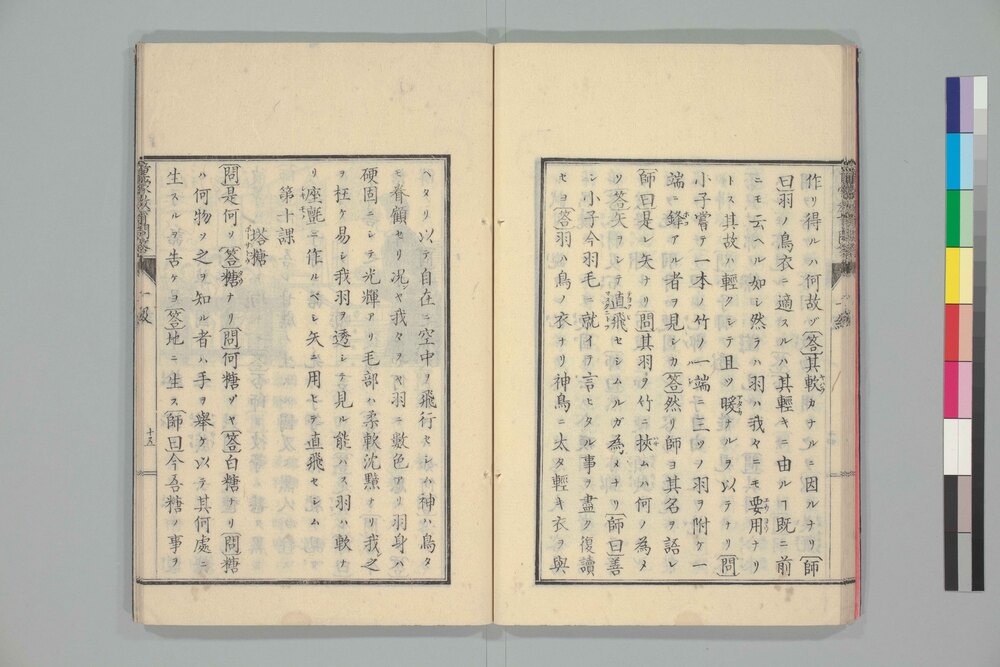 作リ得ルハ何故ゾ答其軟カナルニ因ルナリ師
曰羽ノ鳥衣ニ適スルハ其輕キニ由ルヿ既ニ前
ニモ云ヘル如シ然ラハ羽ハ我々ニモ要用ナリ
トス其故ハ輕クシテ且ツ暖ナルヲ以テナリ問
小子嘗テ一本ノ竹ノ一端ニ三ツノ羽ヲ附ケ一
端ニ鋒アル者ヲ見シカ答然リ師ヨ其名ヲ語レ
師曰是レ矢ナリ問其羽ヲ竹ニ挾ムハ何ノ為メ
ゾ答矢ヲシテ直飛セシムルガ為メナリ師曰善
シ小子今羽毛ニ就イテ言ヒタル事ヲ盡ク復讀
セヨ答羽ハ鳥ノ衣ナリ神鳥ニ太タ輕キ衣ヲ與
ヘタリ以テ自在ニ空中ヲ飛行セシム神ハ鳥タ
モ眷顧セリ况ヤ我々ヲヤ羽ニ數色アリ羽身ハ
硬固ニシテ光輝アリ毛部ハ柔軟沈黙ナリ我之
ヲ枉ケ易シ我羽ヲ透シテ見ル能ハス羽ハ軟ナ
リ座氈ニ作ルベシ矢ニ用ヒテ直飛セシム
第十課
塔糖
問是何ソ答糖ナリ問何糖ゾヤ答白糖ナリ問糖
ハ何物ソ之ヲ知ル者ハ手ヲ舉ケ以テ其何處ニ
生スルヲ告ケヨ答地ニ生ス師曰今吾糖ノ事ヲ
十五